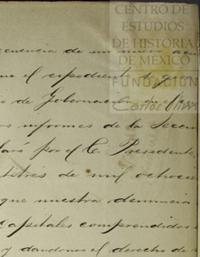 CENTRO DE
ESTUDIOS
DE HISTORIA
DE MÉXICO
FUNDACIÓN
Carlos Slim
cuencia de un nuevo
el expediente
de Gobernación
os informes de la Secre
por el C. Presidente
de mil ochocie
que nuestra denuncia
capitales comprendidos
y dandonos el derecho de